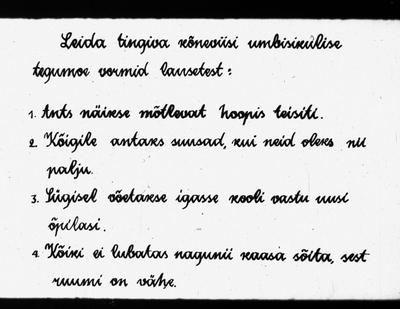 Leida tingiva kõneviisi umbisikulise
tegumoe vormid lausetest:
1. Ants näikse mõtlevat hoopis teisiti.
2. Kõigile antaks suusad, kui neid oleks nii
palju.
3. Sügisel võetakse igasse kooli vastu uusi
õpilasi.
4. Kõiki ei lubatas nagunii kaasa sõita, sest
ruumi on vähe.